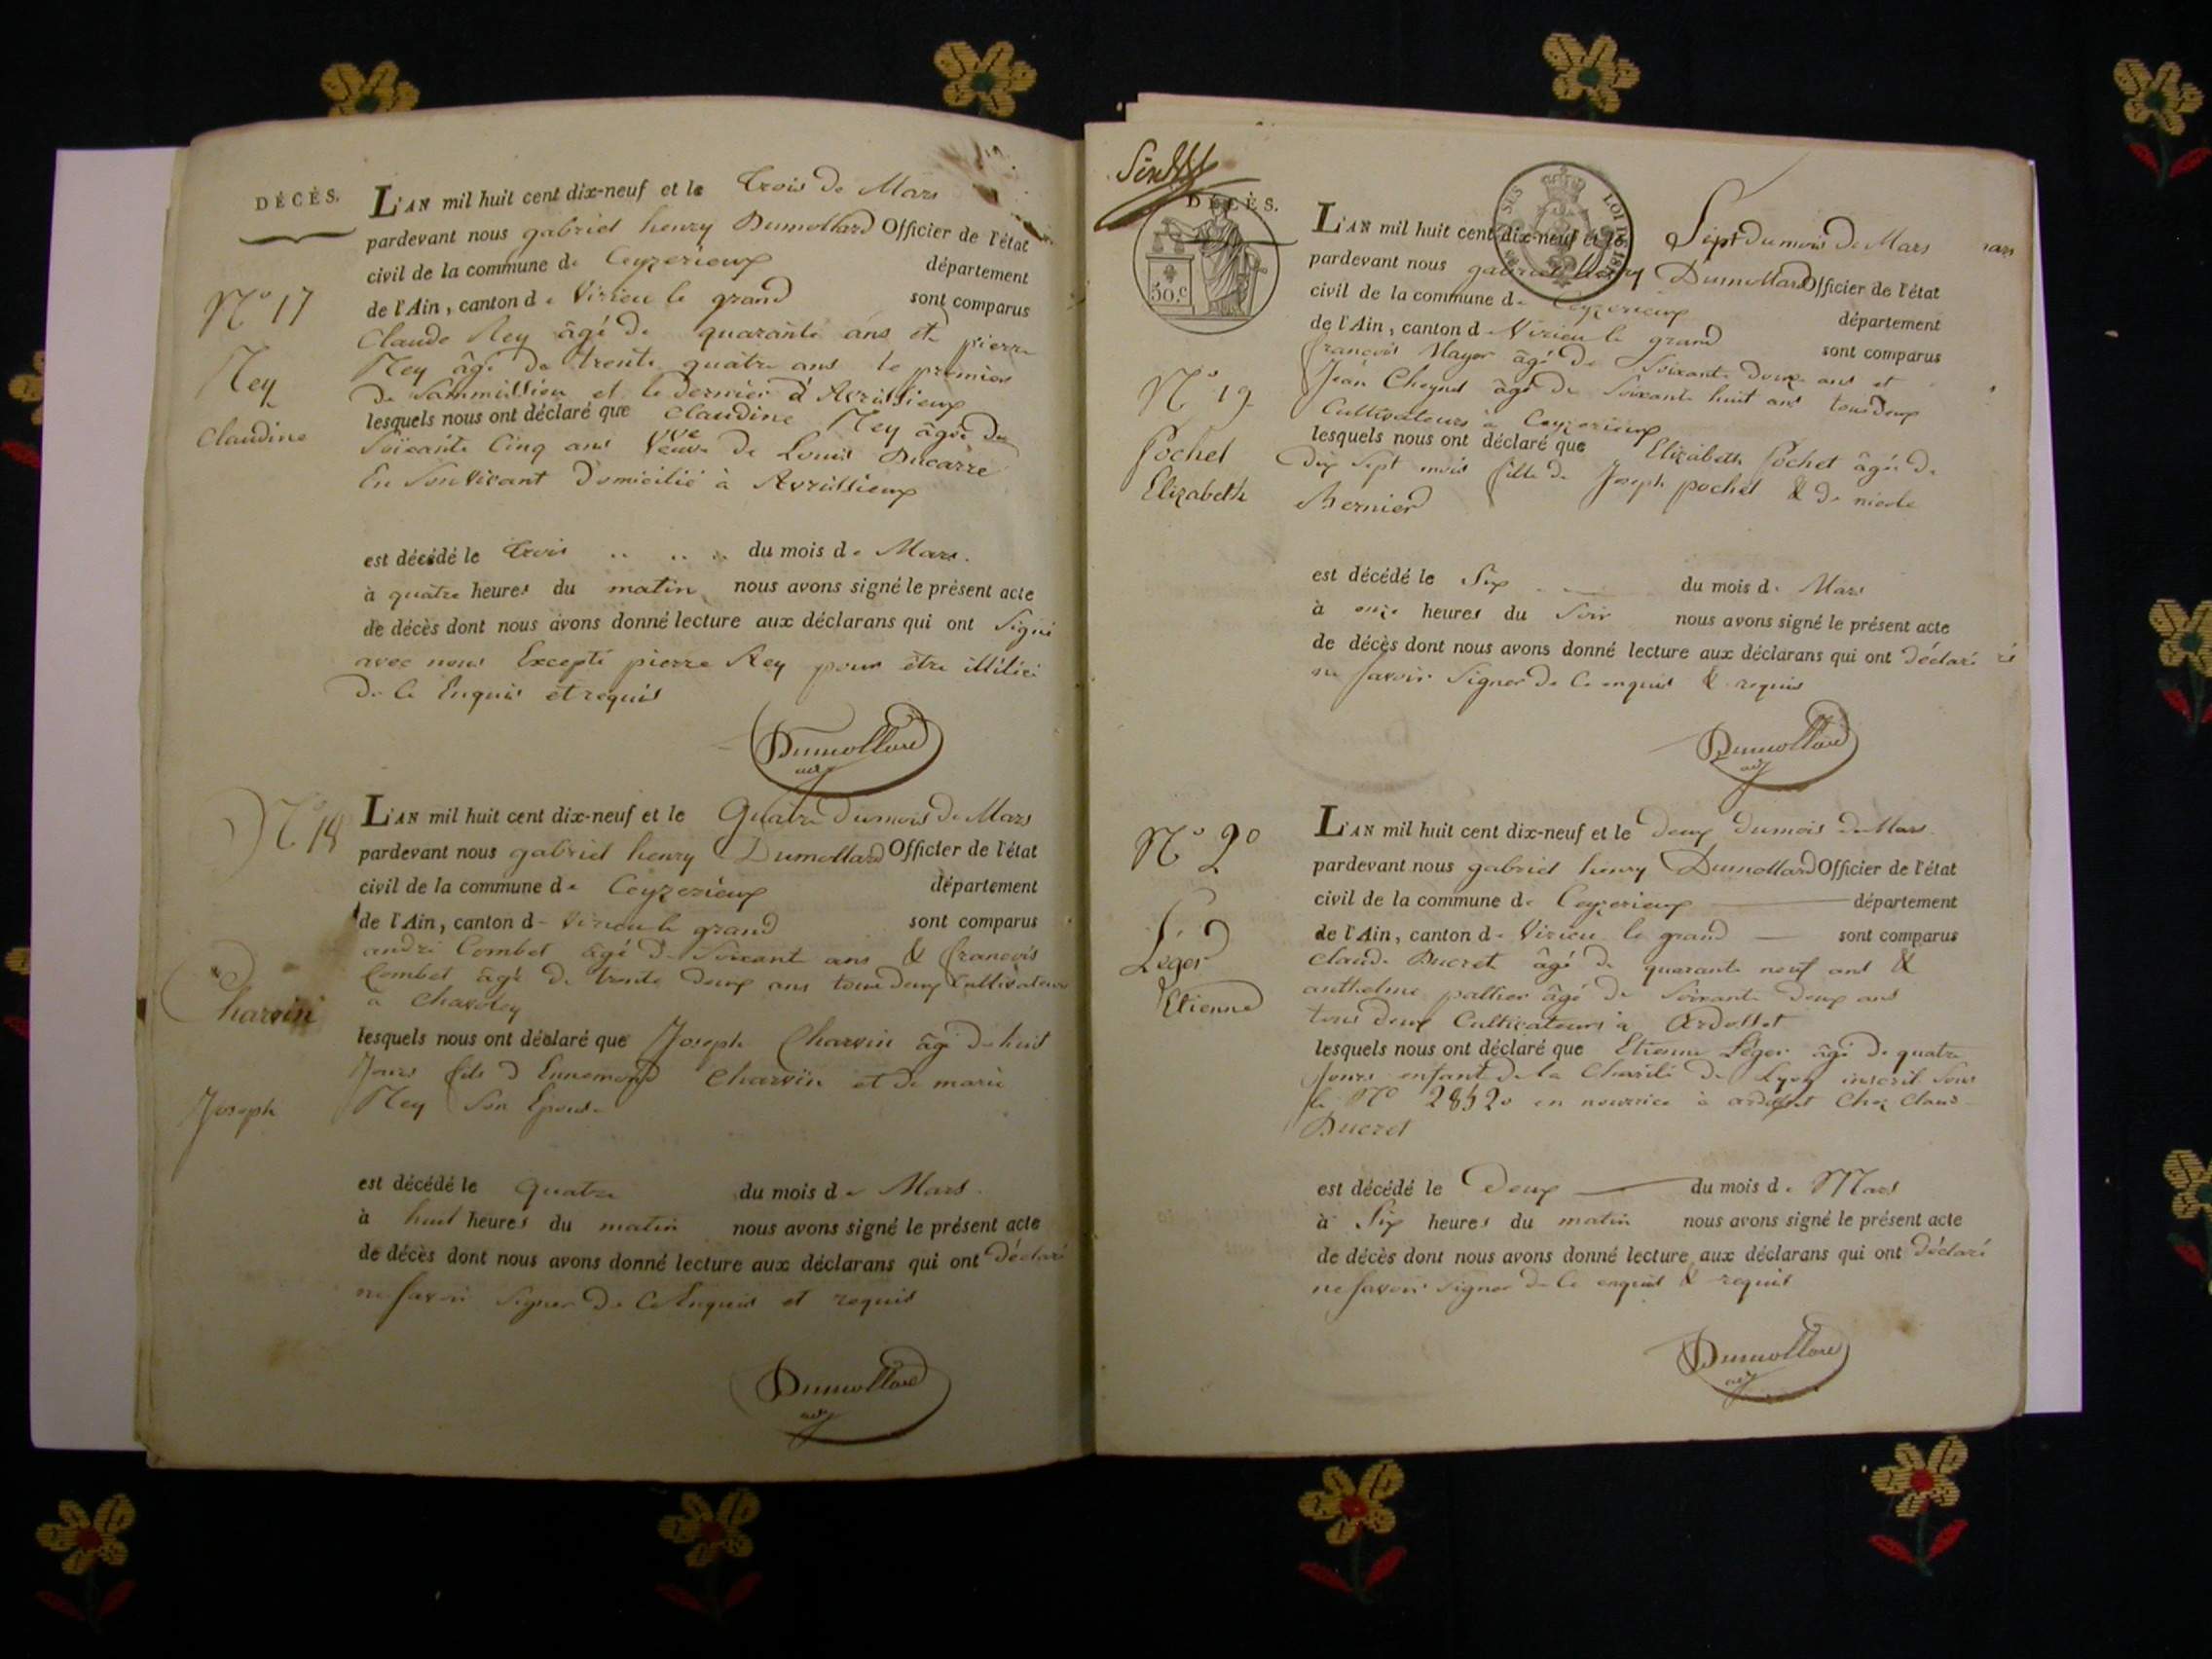 DÉCÈS.
L'AN mil huit cent dix-neuf et le trois de Mars
pardevant nous gabriel henry Dumollard Officier de l'état
civil de la commune de Ceyzerieux département
de l'Ain, canton de Virieu le grand sont comparus
N° 17
Claude Rey âgé de quarante ans et pierre
Rey âgé de trente quatre ans le premier
de et le dernier d'Avrissieux
Rey
Claudine
lesquels nous ont déclaré que Claudine Rey âgée de
Soixante Cinq ans veuve de Louis Ducarre
En Son vivant Domicilié à Avrissieux
est décédé le trois du mois de Mars.
à quatre heures du matin nous avons signé le présent acte
de décès dont nous avons donné lecture aux déclarans qui ont Signé
avec nous Excepté pierre Rey pour être illitéré
de ce Enquis et requis
Dumollard
N° 18
L'AN mil huit cent dix-neuf et le Quatre du mois de Mars
pardevant nous gabriel henry Dumollard Officier de l'état
civil de la commune de Ceyzerieux département
de l'Ain, canton de Virieu le grand sont comparus
andré Combet âgé de Soixante ans & françois
Combet âgé de trente deux ans tous deux Cultivateurs
à Chavoley
Charvin
Joseph
lesquels nous ont déclaré que Joseph Charvin âgé de huit
Jours fils d'Ennemond Charvin et de marie
Rey Son Epouse
est décédé le quatre du mois de Mars.
à huit heures du matin nous avons signé le présent acte
de décès dont nous avons donné lecture aux déclarans qui ont Déclaré
ne savoir Signer de Ce Enquis et requis
Dumollard
DÉCÈS.
50.c
L'AN mil huit cent dix-neuf et le Sept du mois de Mars
pardevant nous gabriel henry Dumollard Officier de l'état
civil de la commune de Ceyzerieux département
de l'Ain, canton de Virieu le grand sont comparus
N° 19
françois Mayor âgé de Soixante Douze ans et
Jean Cheynet âgé de Soixante huit ans tous deux
Cultivateurs à Ceyzerieux
Pochet
Elizabeth
lesquels nous ont déclaré que Elizabeth Pochet âgée de
Dix Sept mois fille de Joseph pochet & de nicole
Bernier
est décédé le Six du mois de Mars
à onze heures du Soir nous avons signé le présent acte
de décès dont nous avons donné lecture aux déclarans qui ont déclaré
ne savoir Signer de Ce enquis & requis
Dumollard
N° 20
L'AN mil huit cent dix-neuf et le Deux du mois de Mars
pardevant nous gabriel henry Dumollard Officier de l'état
civil de la commune de Ceyzerieux département
de l'Ain, canton de Virieu le grand sont comparus
Claude Ducret âgé de quarante neuf ans &
anthelme pallier âgé de Soixante deux ans
tous deux Cultivateurs à Ardosset
Léger
Etienne
lesquels nous ont déclaré que Etienne Léger âgé de quatre
Jours enfant de la Charité de Lyon inscrit Sous
le N° 28520 en nourrice à ardosset Chez Claude
Ducret
est décédé le Deux du mois de Mars
à Six heures du matin nous avons signé le présent acte
de décès dont nous avons donné lecture aux déclarans qui ont déclaré
ne savoir signer de Ce enquis & requis
Dumollard